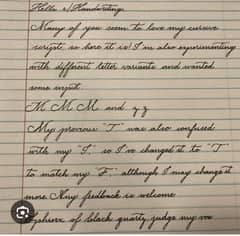 Hello r/Handwriting
Many of you seem to love my cursive
script, so here it is! I'm also experimenting
with different letter variants and wanted
some input.
M M M and z z
My previous "T" was also confused
with my "I," so I've changed it to "T"
to match my "F," although I may change it
more. Any feedback is welcome.
Sphinx of black quartz, judge my vow